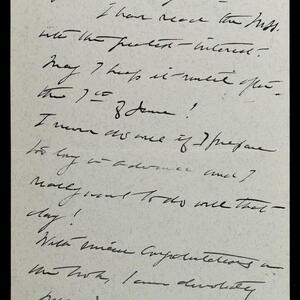 I have read the MSS.
with the greatest interest.
May I keep it until after
the 7th of June!
I never do well if I prepare
too long in advance and I
really want to do well that
day!
With sincere Congratulations on
the book, I am devotedly